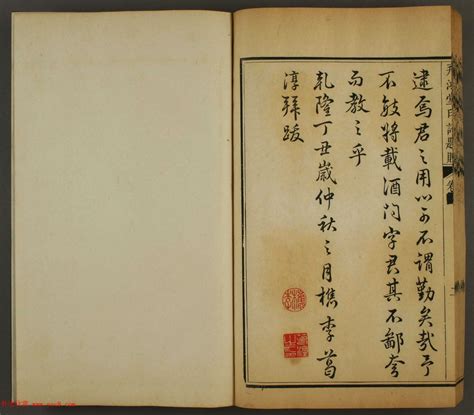 飛鴻堂印譜題
逮焉君之用心可不謂勤矣哉予
不敏將載酒问字君其不鄙
而教之乎
乾隆丁丑歲仲秋之月檇李葛
淳拜跋